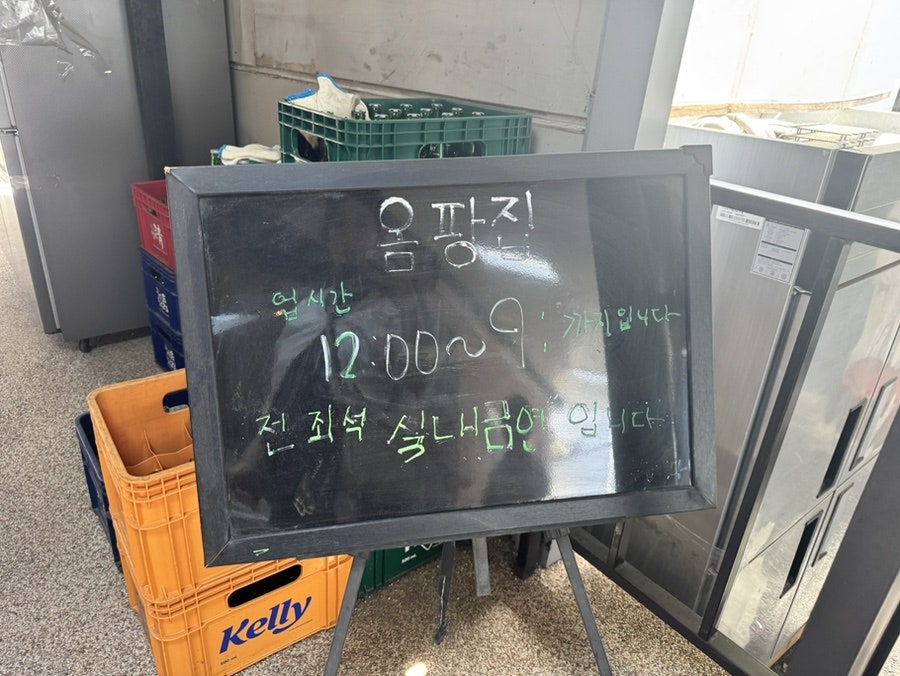 옴팡집
업시간
12:00~9: 까지입니다
전 죄석 실내금연 입니다
Kelly